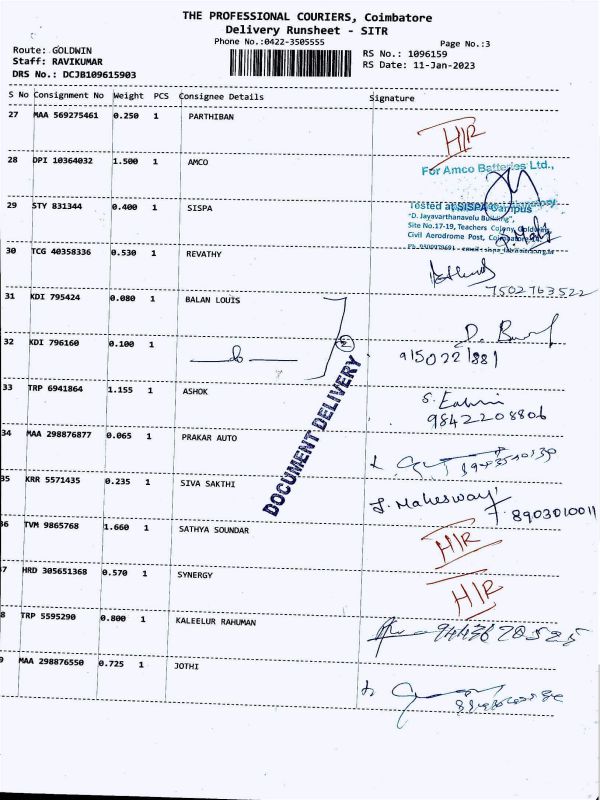 THE PROFESSIONAL COURIERS, Coimbatore
Delivery Runsheet - SITR
Phone No.:0422-3505555
Page No.:3
Route: GOLDWIN
RS No.: 1096159
Staff: RAVIKUMAR
RS Date: 11-Jan-2023
DRS No.: DCJB109615903
S No Consignment No Weight PCS Consignee Details Signature
27 MAA 569275461 0.250 1 PARTHIBAN
HIR
28 DPI 10364032 1.500 1 AMCO
For Amco Batteries Ltd.,
29 STY 831344 0.400 1 SISPA
Tested at SISPA Campus
"D. Jayavarthanavelu Building",
Site No.17-19, Teachers Colony, Goldwins
Civil Aerodrome Post,
30 TCG 40358336 0.530 1 REVATHY
7502763522
31 KDI 795424 0.080 1 BALAN LOUIS
32 KDI 796160 0.100 1
2
9150221881
33 TRP 6941864 1.155 1 ASHOK
9842208806
DOCUMENT DELIVERY
34 MAA 298876877 0.065 1 PRAKAR AUTO
35 KRR 5571435 0.235 1 SIVA SAKTHI
8903010011
36 TVM 9865768 1.660 1 SATHYA SOUNDAR
HIR
7 HRD 305651368 0.570 1 SYNERGY
HIR
8 TRP 5595290 0.800 1 KALEELUR RAHUMAN
9 MAA 298876550 0.725 1 JOTHI